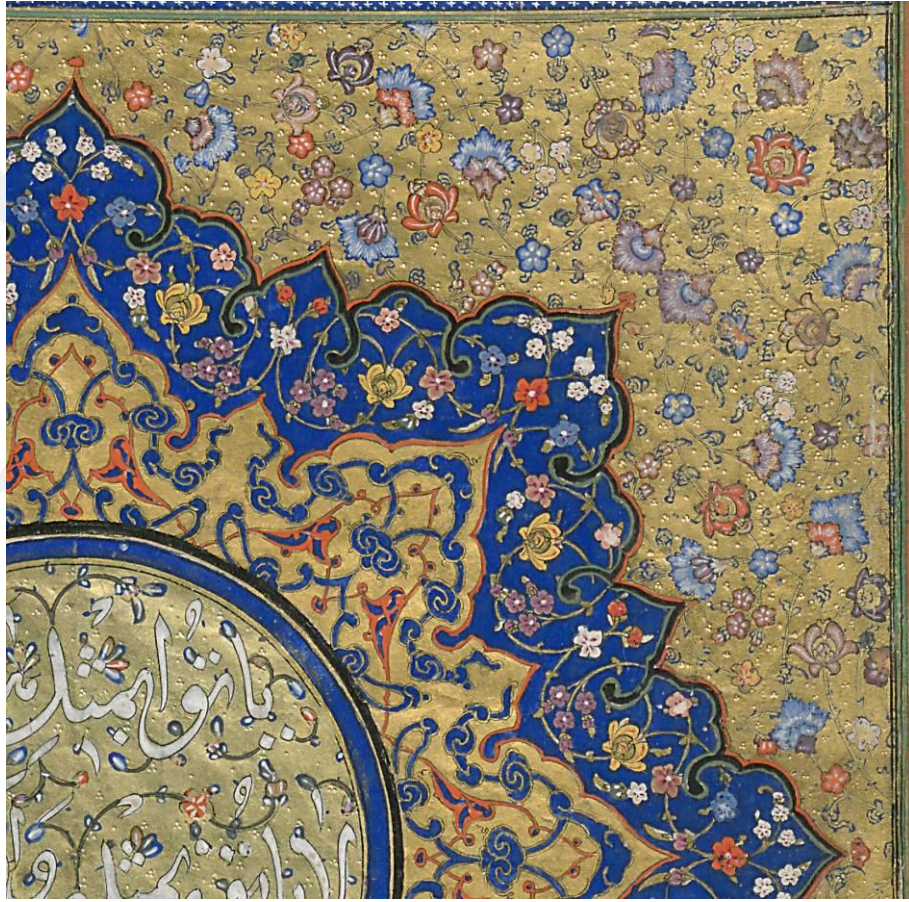 یاتوا بمثل
لا یاتون بمثله و